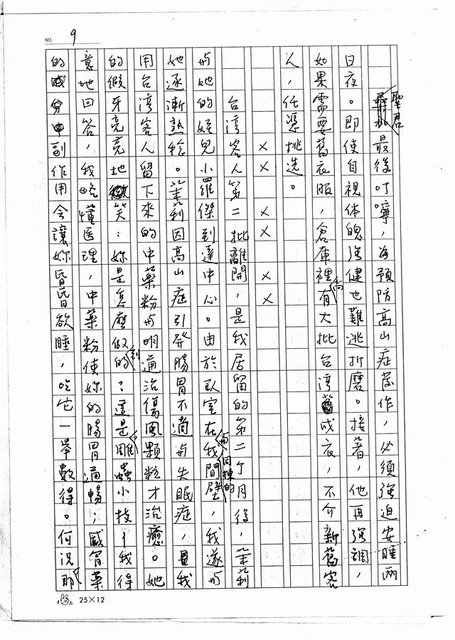 NO. 9
聖君最後叮嚀,為預防高山症蔭作,必須強迫安睡兩
日夜。即使自視体魄強健也難逃折磨。接著,他再強調
如果需要舊衣服,倉庫裡尚有大批台湾成衣,不分新舊客
人,任憑挑选。
×××××
台湾客人第二批離開,是我居留的第二个月後,茉莉
与她的姪兒小羅傑到達中心。由於臥室在我同樓的間壁,我遂与
她逐漸熟稔。茉莉因高山症引發腸胃不適与失眠症,是我
用台湾客人留下來的中藥粉与明通治傷風顆粒才治癒。她
的假牙亮亮地笑:妳是怎麼做到的?這是雕蟲小技!我得
意地回答,我略懂医理,中藥粉使妳的腸胃通暢;感冒藥
的成份中副作用会讓妳昏昏欲睡,吃它一舉數得。何況那
25×12